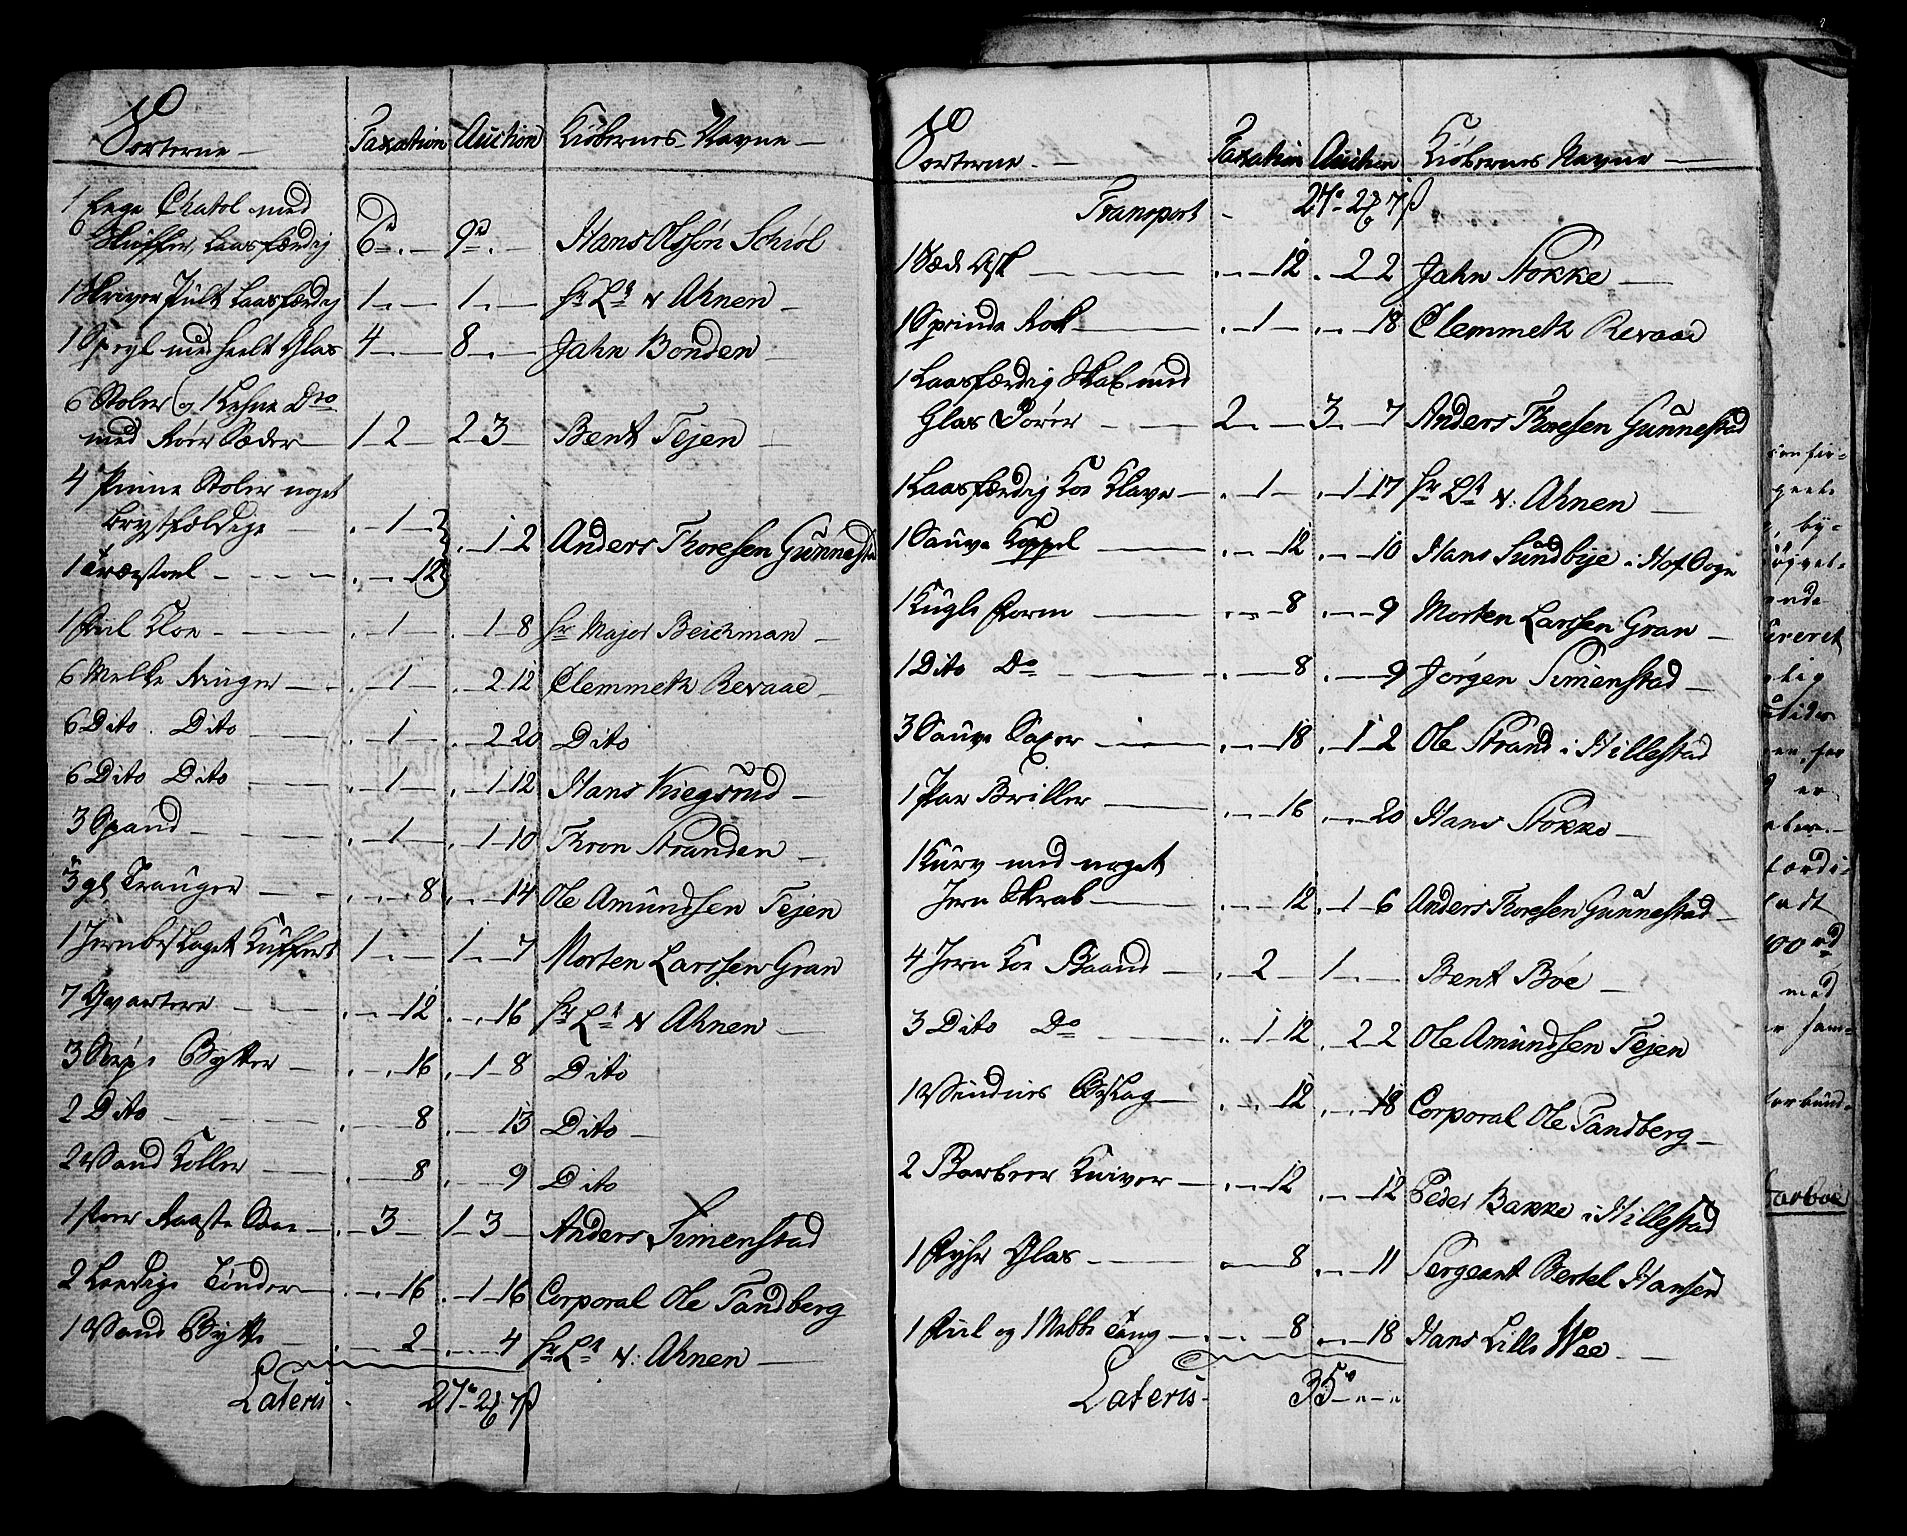 Sorterne Taxation Auction Kiöbernes Navne
1 Eege Chatol med
6 Skuffer, Laasfærdig 6 9 Hans Olssön Schiöl
1 Skriver Pult Laasfærdig 1 1 Hr Lt v Ahnen
1 Speyl med heelt Glas 4 8 Jahn Bonden
6 Stoler og Do
med Rör Sæder 1 2 2 3 Bent Tejen
4 Pinne Stoler noget
brystfældige 1
1 Træstoel 12 1 2 Anders Thoresen Gunnestad
1 1 1 8 Hr Major Beichman
6 Melke Ringer 1 2 12 Clemmeth Revaae
6 Dito Dito 1 2 20 Dito
6 Dito Dito 1 1 12 Hans Kiegsrud
3 Spand 1 1 10 Thron Stranden
3 gl Trauger 8 14 Ole Amundsen Tejen
1 Jernbeslaget Kuffert 1 1 7 Morten Larssen Gran
7 Qvartere 12 16 Hr Lt v Ahnen
3 Bytter 16 1 8 Dito
2 Dito 8 13 Dito
2 Vand Koller 8 9 Dito
1 3 1 3 Anders Simenstad
2 Leedige Tönder 16 1 16 Corporal Ole Tandberg
1 Vand Bytte 2 4 Hr Lt v: Ahnen
Lateris 27 2 7
Sorterne Taxation Auction Kiöbernes Navne
Transport 27 2 7
1 Sæde Ask 12 2 2 Jahn Stokke
1 Spinde Rok 1 18 Clemmeth Revaae
1 Laasfærdig Skab med
Glas Dörer 2 3 7 Anders Thoresen Gunnestad
1 Laasfærdig Koe Klave 1 1 17 Hr Lt v: Ahnen
1 Sauve Koppel 12 10 Hans Sundbye i Hof Sogn
1 Kugle Form 8 9 Morten Larssen Gran
1 Dito Do 8 9 Jörgen Simenstad
3 Sauve Saxer 18 1 2 Ole Strand i Hillestad
1 Par Briller 16 20 Hans Stokke
1 Kurv med noget
Jern Skrab 12 1 6 Anders Thoresen Gunnestad
4 Jern Koe Baand 2 1 Bent Böe
3 Dito Do 1 12 2 2 Ole Amundsen Tejen
1 Vindues Beslag 12 18 Corporal Ole Tandberg
2 Barbeer Kniver 12 12 Peder Bakke i Hillestad
1 Glas 8 11 Sergeant Bertel Hansen
1 Fiil og 1 Nebbe Tang 8 18 Hans Lille Wee
Lateris 35